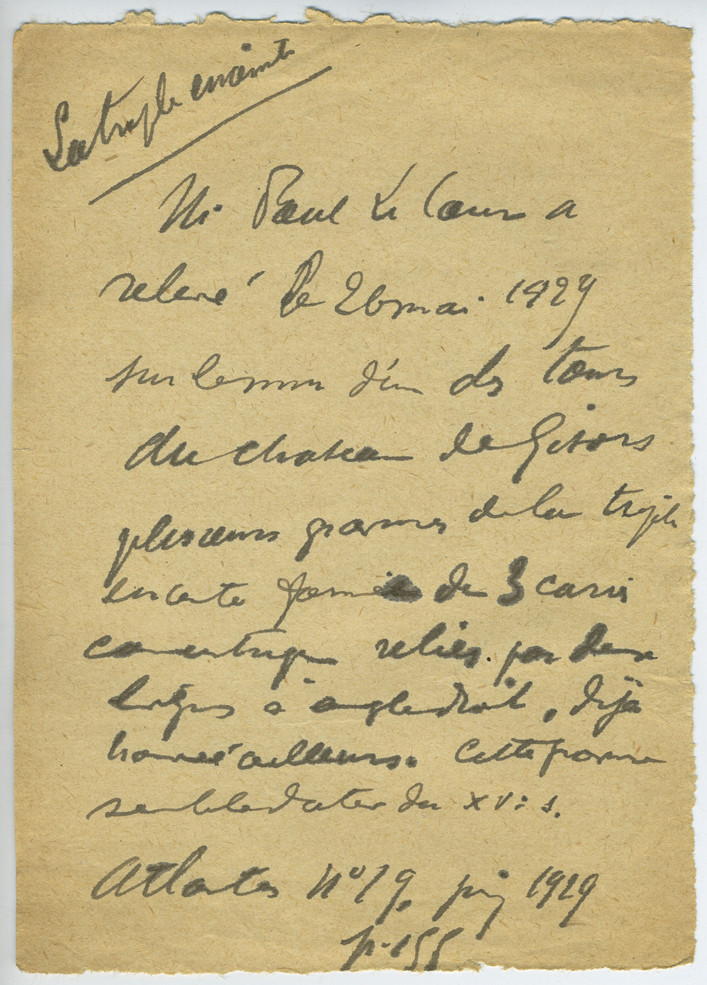 La triple enceinte
Mr Paul Le Cour a
relevé le 26 mai 1929
sur le mur d'un des tours
du chateau de Gisors
plusieurs gravures de la triple
enceinte formée de 3 carrés
concentriques reliés par deux
lignes à angle droit, déjà
trouvée ailleurs. Cette gravure
semble dater du XVI s.
Atlantis N° 19, juin 1929
p. 155